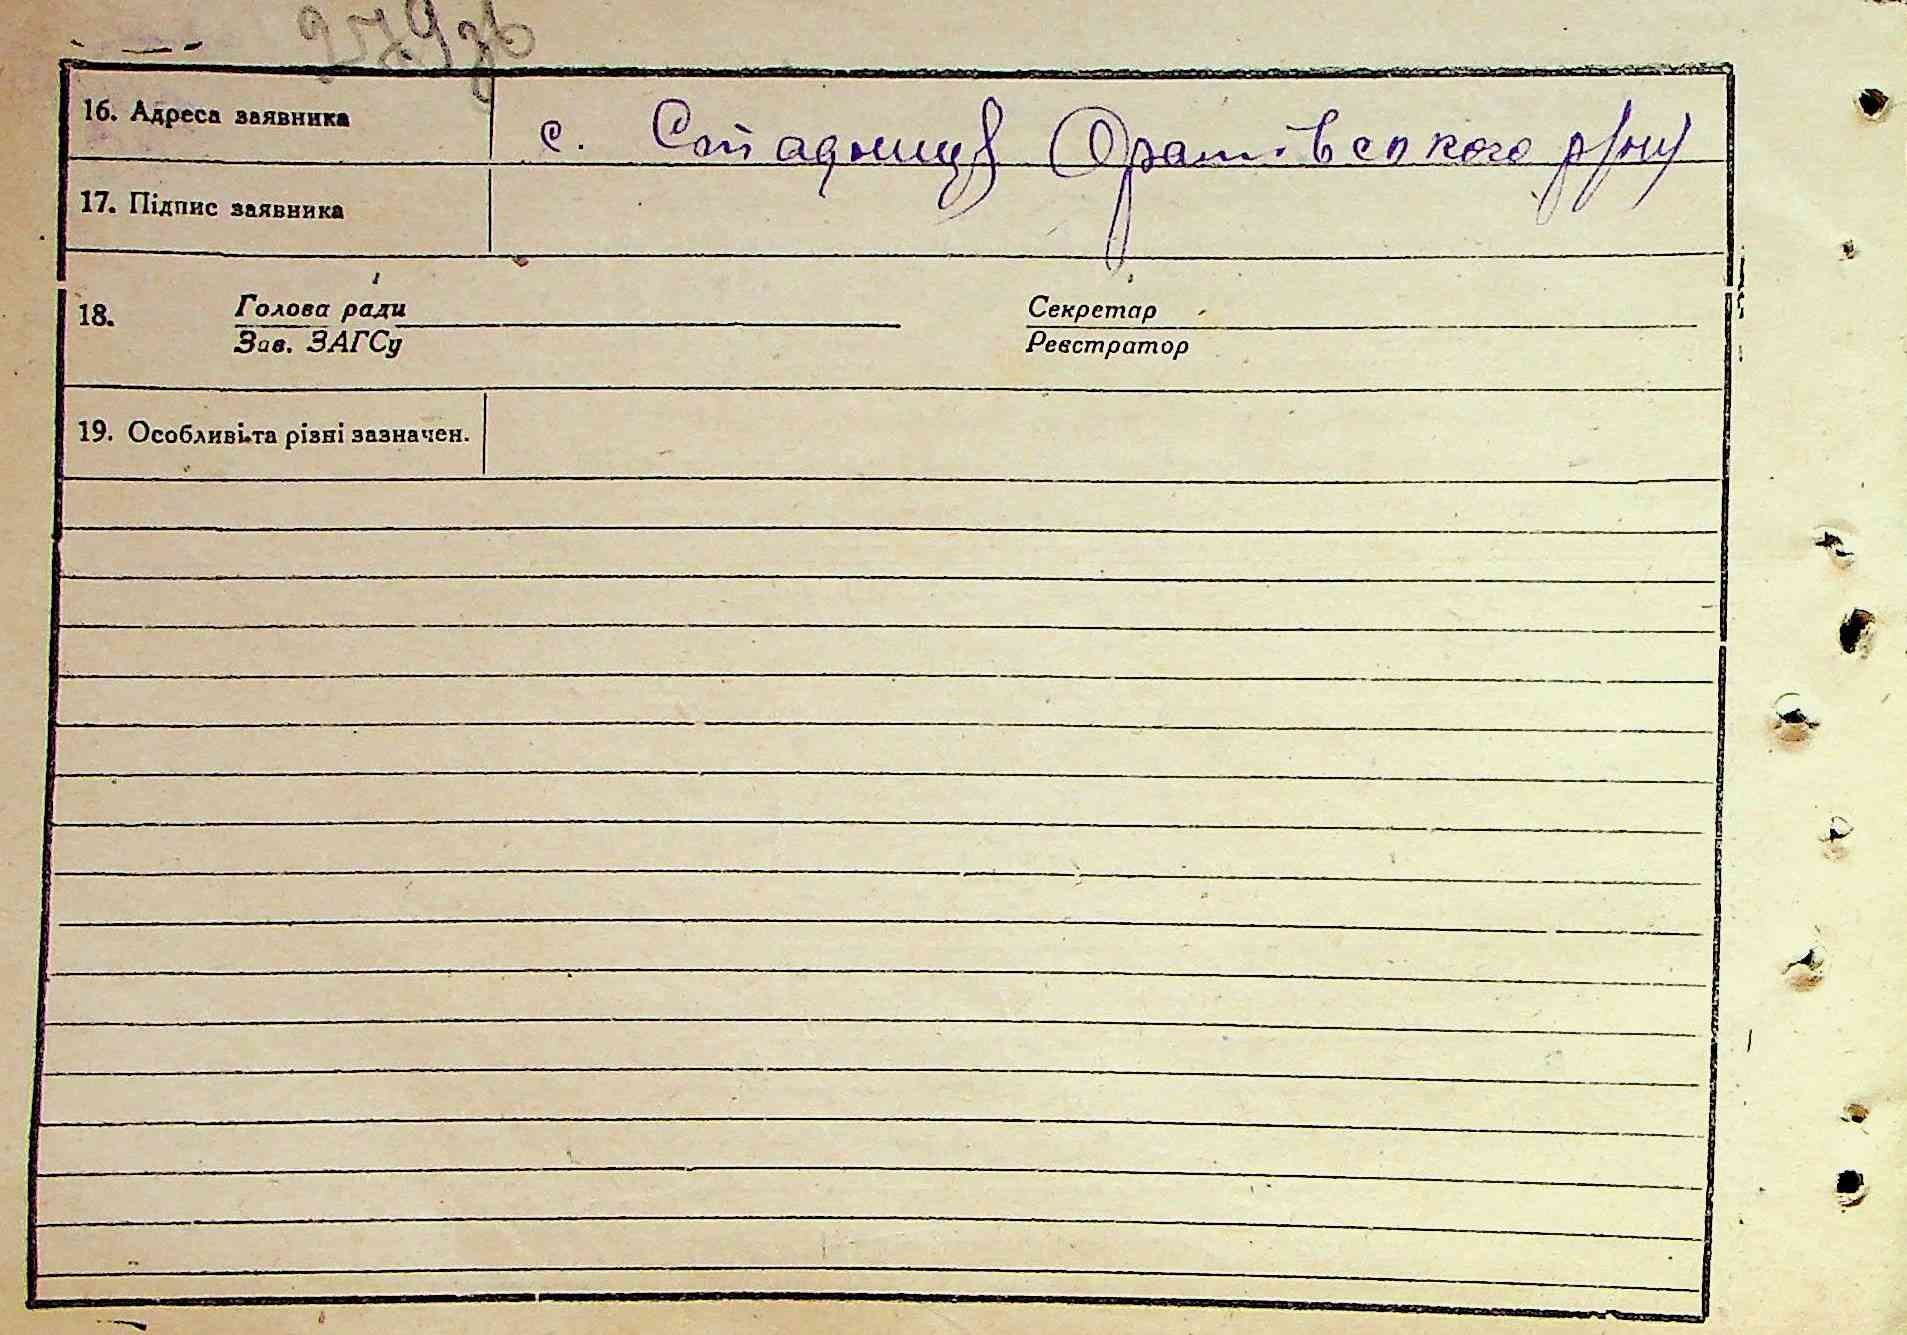 279зв
16. Адреса заявника с. Стадниця Оратівського р/ну
17. Підпис заявника
18. Голова ради Секретар
Зав. ЗАГСу Реєстратор
19. Особливі та різні зазначен.